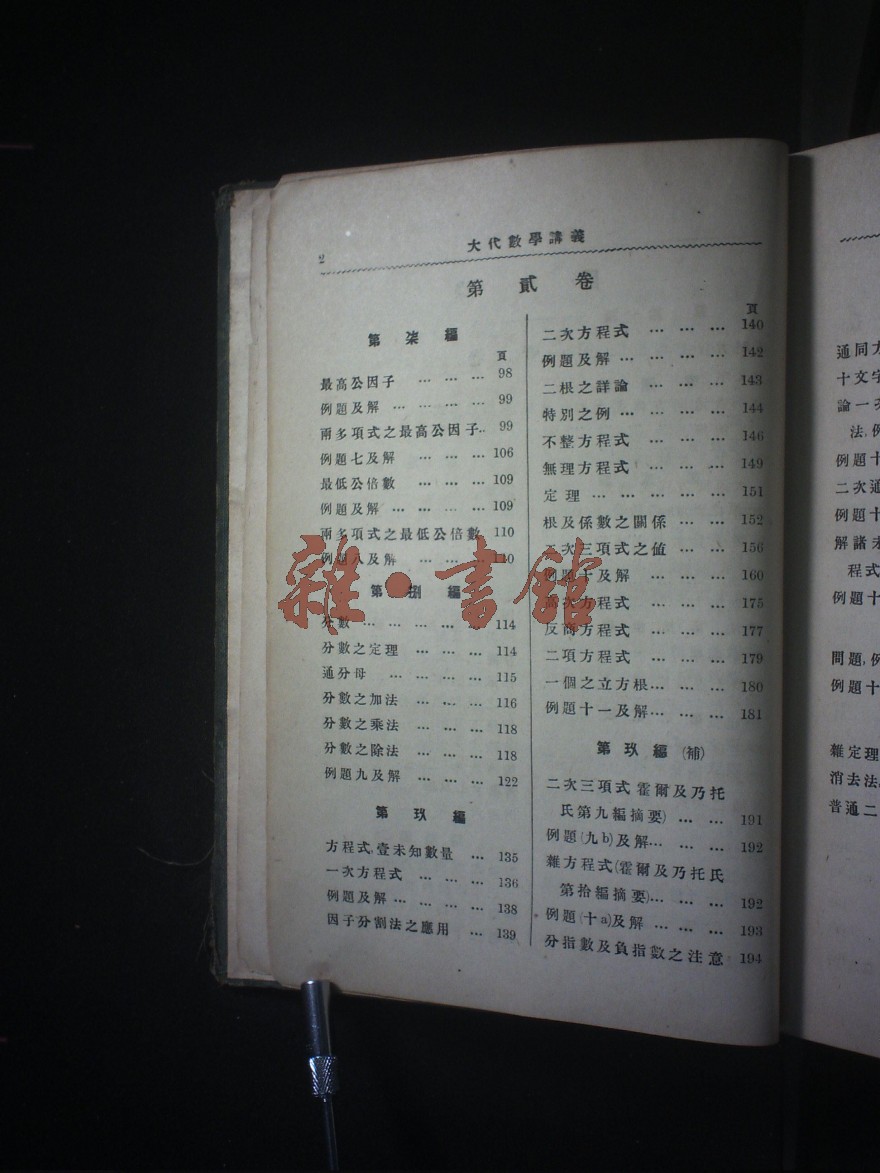 2
大代數學講義
第貳卷
第柒編
頁
最高公因子 … … … 98
例題及解 … … … … 99
兩多項式之最高公因子.. 99
例題七及解 … … … 106
最低公倍數 … … … 109
例題及解 … … … … 109
兩多項式之最低公倍數 110
例題八及解 … … …
第捌編
分數 … … … … … 114
分數之定理 … … … 114
通分母 … … … … 115
分數之加法 … … … 116
分數之乘法 … … … 118
分數之除法 … … … 118
例題九及解 … … … 122
第玖編
方程式,壹未知數量 … 135
一次方程式 … … … 136
例題及解 … … … … 138
因子分割法之應用 … 139
頁
二次方程式 … … … 140
例題及解 … … … … 142
二根之詳論 … … … 143
特別之例 … … … … 144
不整方程式 … … … 146
無理方程式 … … … 149
定理 … … … … … 151
根及係數之關係 … … 152
二次三項式之値 … … 156
例題十及解 … … … 160
高次方程式 … … … 175
反商方程式 … … … 177
二項方程式 … … … 179
一個之立方根… … … 180
例題十一及解… … … 181
第玖編(補)
二次三項式 霍爾及乃托
氏第九編摘要) … … 191
例題(九b)及解… … … 192
雜方程式(霍爾及乃托氏
第拾編摘要)… … … 192
例題(十a)及解 … … … 193
分指數及負指數之注意 194
雜·書館
通同方
十文字
論一次
法,例
例題十
二次通
例題十
解諸未
程式
例題十
問題,例
例題十
雜定理
消去法
普通二